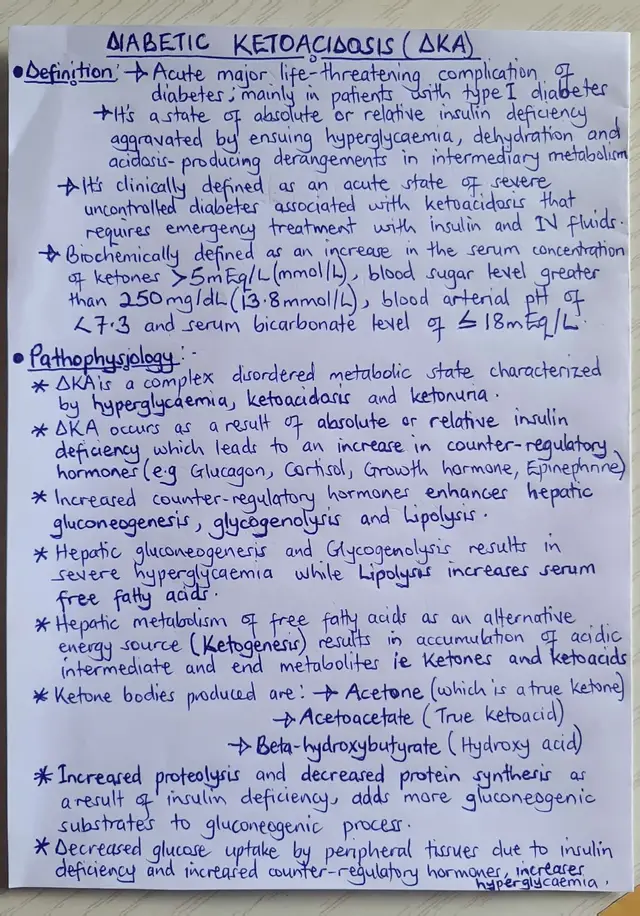 DIABETIC KETOACIDOSIS (DKA)
• Definition: → Acute major life-threatening complication of
diabetes; mainly in patients with type I diabetes
→ It's a state of absolute or relative insulin deficiency
aggravated by ensuing hyperglycaemia, dehydration and
acidosis-producing derangements in intermediary metabolism
→ It's clinically defined as an acute state of severe
uncontrolled diabetes associated with ketoacidosis that
requires emergency treatment with insulin and IV fluids.
→ Biochemically defined as an increase in the serum concentration
of ketones >5mEq/L (mmol/L), blood sugar level greater
than 250mg/dL (13.8mmol/L), blood arterial pH of
<7.3 and serum bicarbonate level of ≤ 18mEq/L.
• Pathophysiology:-
* DKA is a complex disordered metabolic state characterized
by hyperglycaemia, ketoacidosis and ketonuria.
* DKA occurs as a result of absolute or relative insulin
deficiency which leads to an increase in counter-regulatory
hormones (e.g Glucagon, Cortisol, Growth hormone, Epinephrine)
* Increased counter-regulatory hormones enhances hepatic
gluconeogenesis, glycogenolysis and Lipolysis.
* Hepatic gluconeogenesis and Glycogenolysis results in
severe hyperglycaemia while Lipolysis increases serum
free fatty acids.
* Hepatic metabolism of free fatty acids as an alternative
energy source (Ketogenesis) results in accumulation of acidic
intermediate and end metabolites ie Ketones and ketoacids
* Ketone bodies produced are: → Acetone (which is a true ketone)
→ Acetoacetate (True ketoacid)
→ Beta-hydroxybutyrate (Hydroxy acid)
* Increased proteolysis and decreased protein synthesis as
a result of insulin deficiency, adds more gluconeogenic
substrates to gluconeogenic process.
* Decreased glucose uptake by peripheral tissues due to insulin
deficiency and increased counter-regulatory hormones, increases
hyperglycaemia.